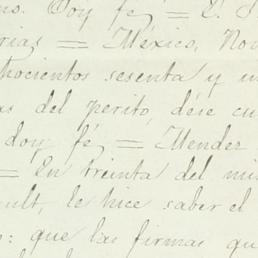 no. Doy fé = E. S
rias = México, Nov
chocientos sesenta y u
as del perito, dije cu
doy fé = Mendez
= En treinta del mis
cult, le hice saber el
o: que las firmas qu